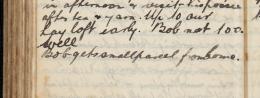 in afternoon & visit hospice
after tea & yarn. Up to our
hay loft early. Bob not too
well
Bob gets small parcel from home.